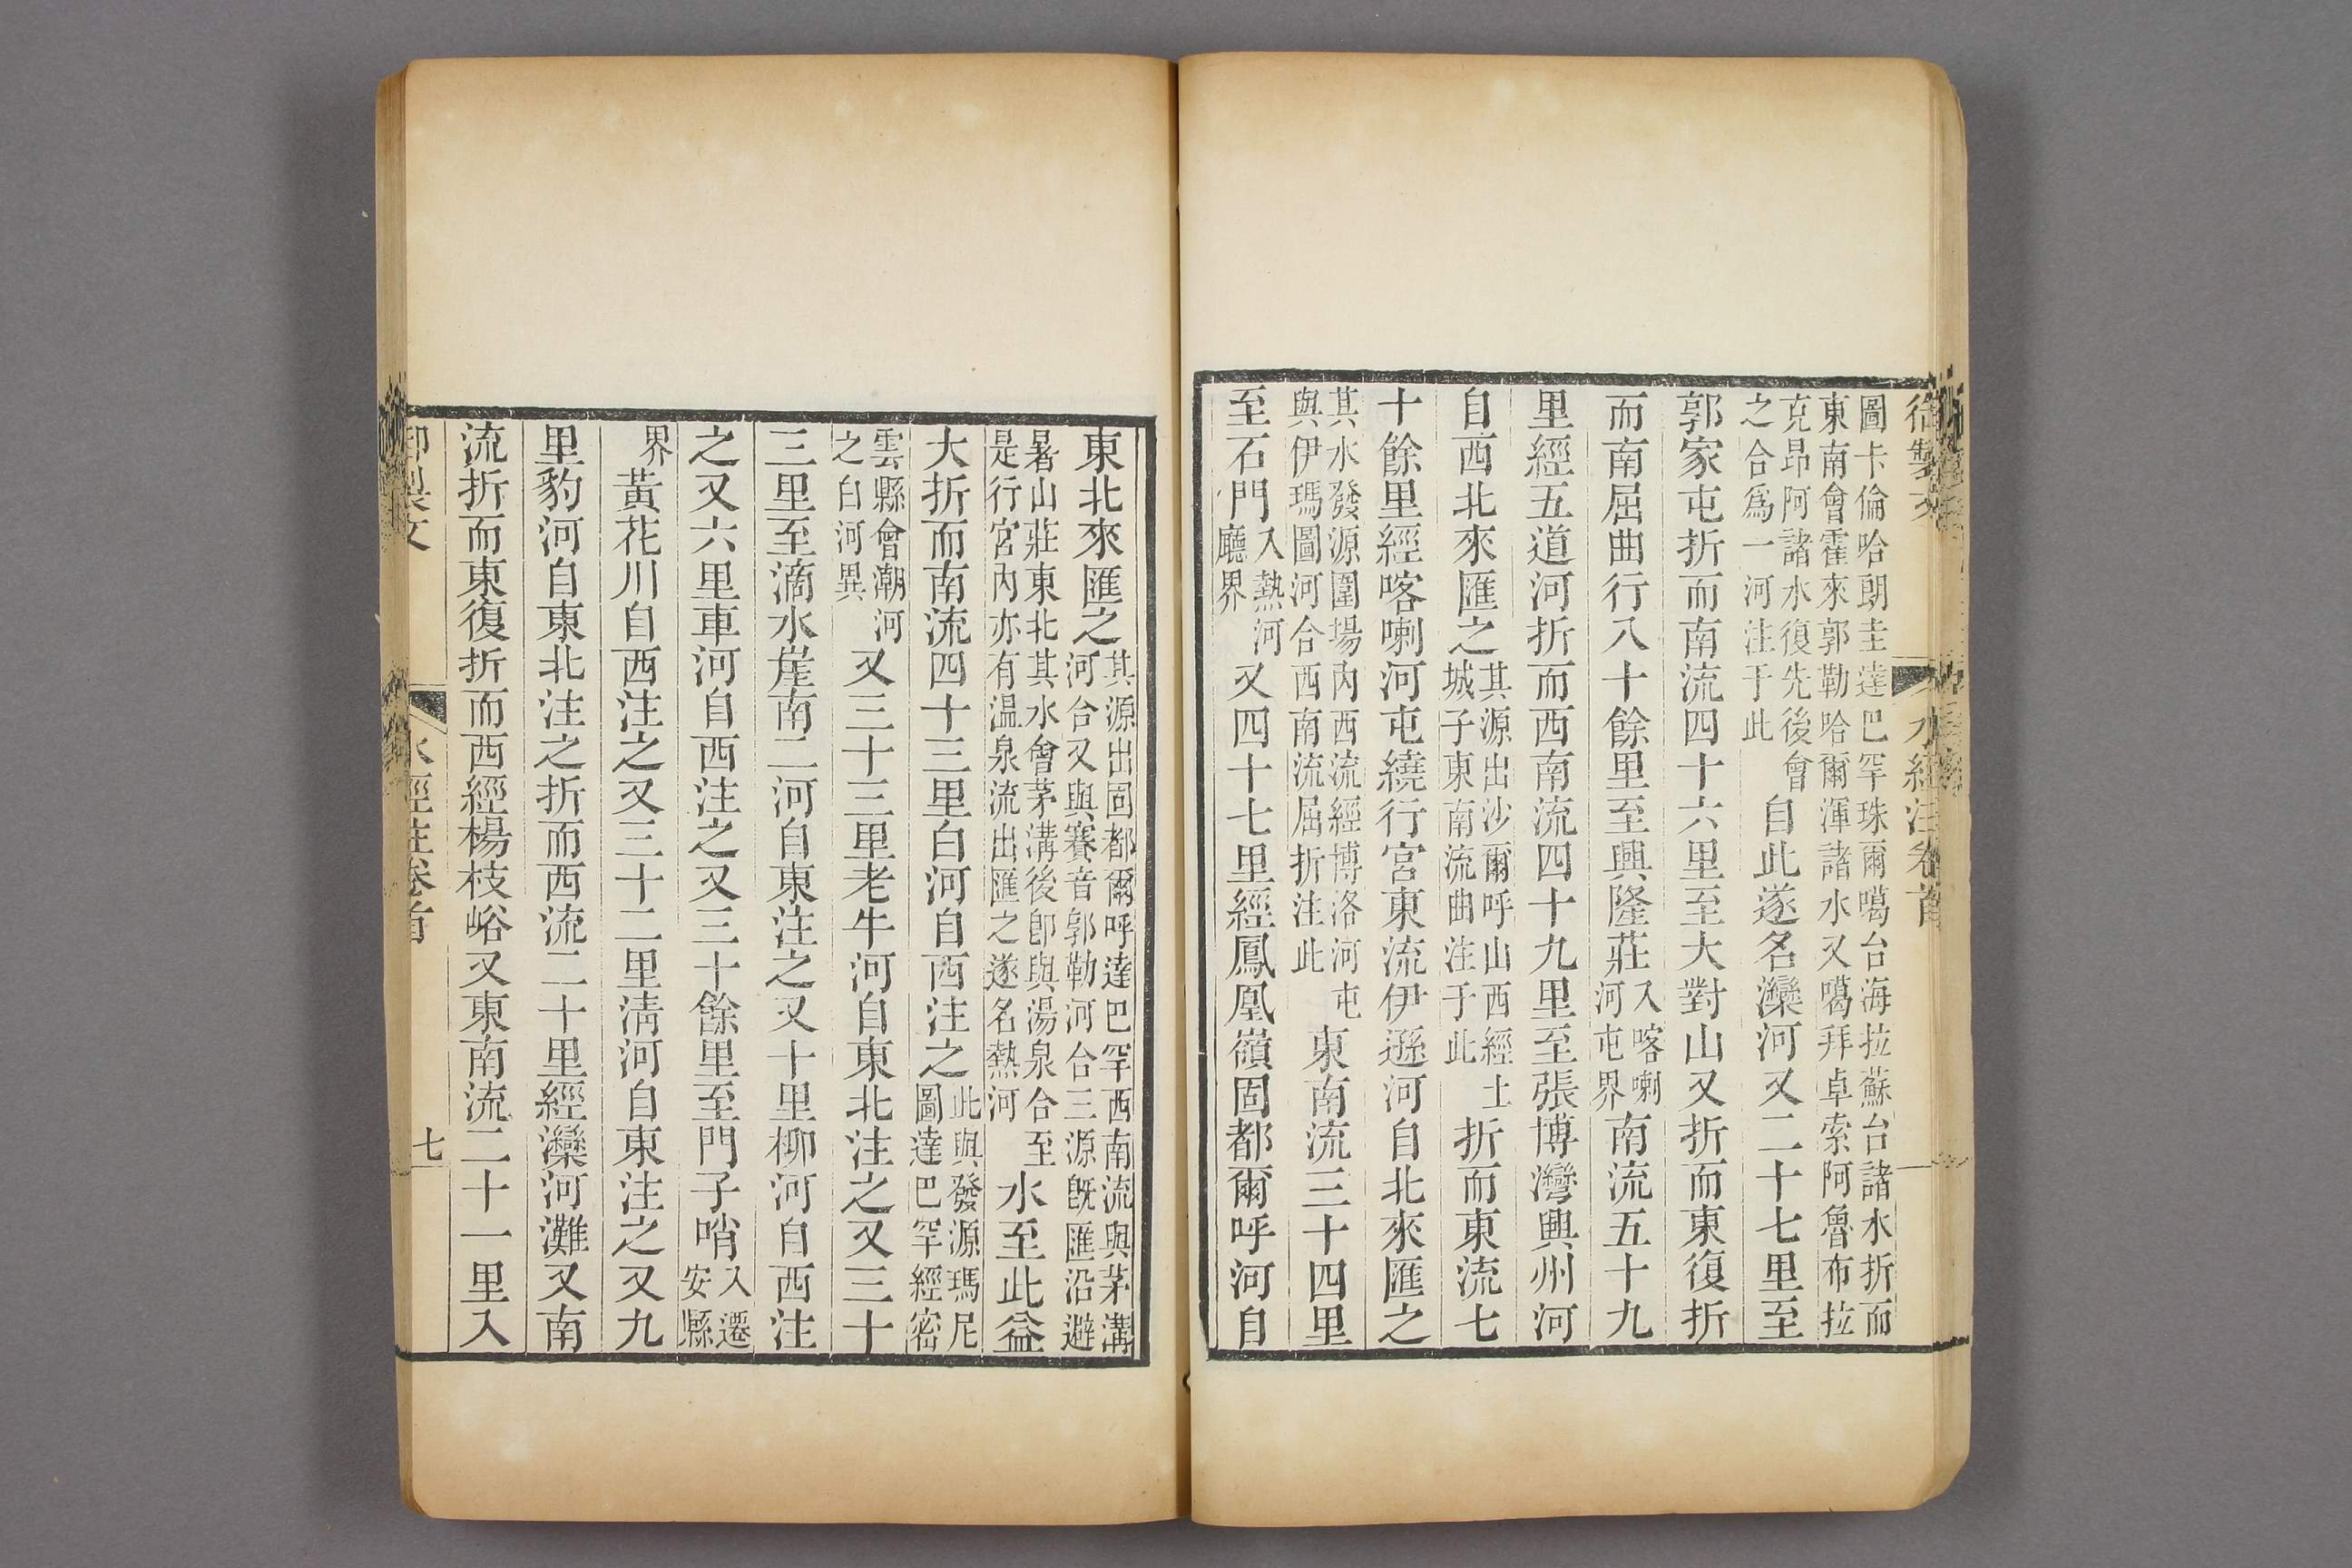 御製文 水經注卷首
圖卡倫哈朗圭達巴罕珠爾噶台海拉蘇台諸水折而
東南會霍來郭勒哈爾渾諸水又噶拜卓索阿魯布拉
克昂阿諸水復先後會之合爲一河注于此自此遂名灤河又二十七里至
郭家屯折而南流四十六里至大對山又折而東復折
而南屈曲行八十餘里至興隆莊入喀喇河屯界南流五十九
里經五道河折而西南流四十九里至張博灣興州河
自西北來匯之其源出沙爾呼山西經土城子東南流曲注于此折而東流七
十餘里經喀喇河屯繞行宮東流伊遜河自北來匯之
其水發源圍場內西流經博洛河屯與伊瑪圖河合西南流屈折注此東南流三十四里
至石門入熱河廳界又四十七里經鳳凰嶺固都爾呼河自
東北來匯之其源出固都爾呼達巴罕西南流與茅溝河合又與賽音郭勒河合三源旣匯沿避
暑山莊東北其水會茅溝後卽與湯泉合至是行宮內亦有温泉流出匯之遂名熱河水至此益
大折而南流四十三里白河自西注之此與發源瑪尼圖達巴罕經密
雲縣會潮河之白河異又三十三里老牛河自東北注之又三十
三里至滴水崖南二河自東注之又十里柳河自西注
之又六里車河自西注之又三十餘里至門子哨入遷安縣
界黃花川自西注之又三十二里淸河自東注之又九
里豹河自東北注之折而西流二十里經灤河灘又南
流折而東復折而西經楊枝峪又東南流二十一里入
御製文 水經注卷首 七